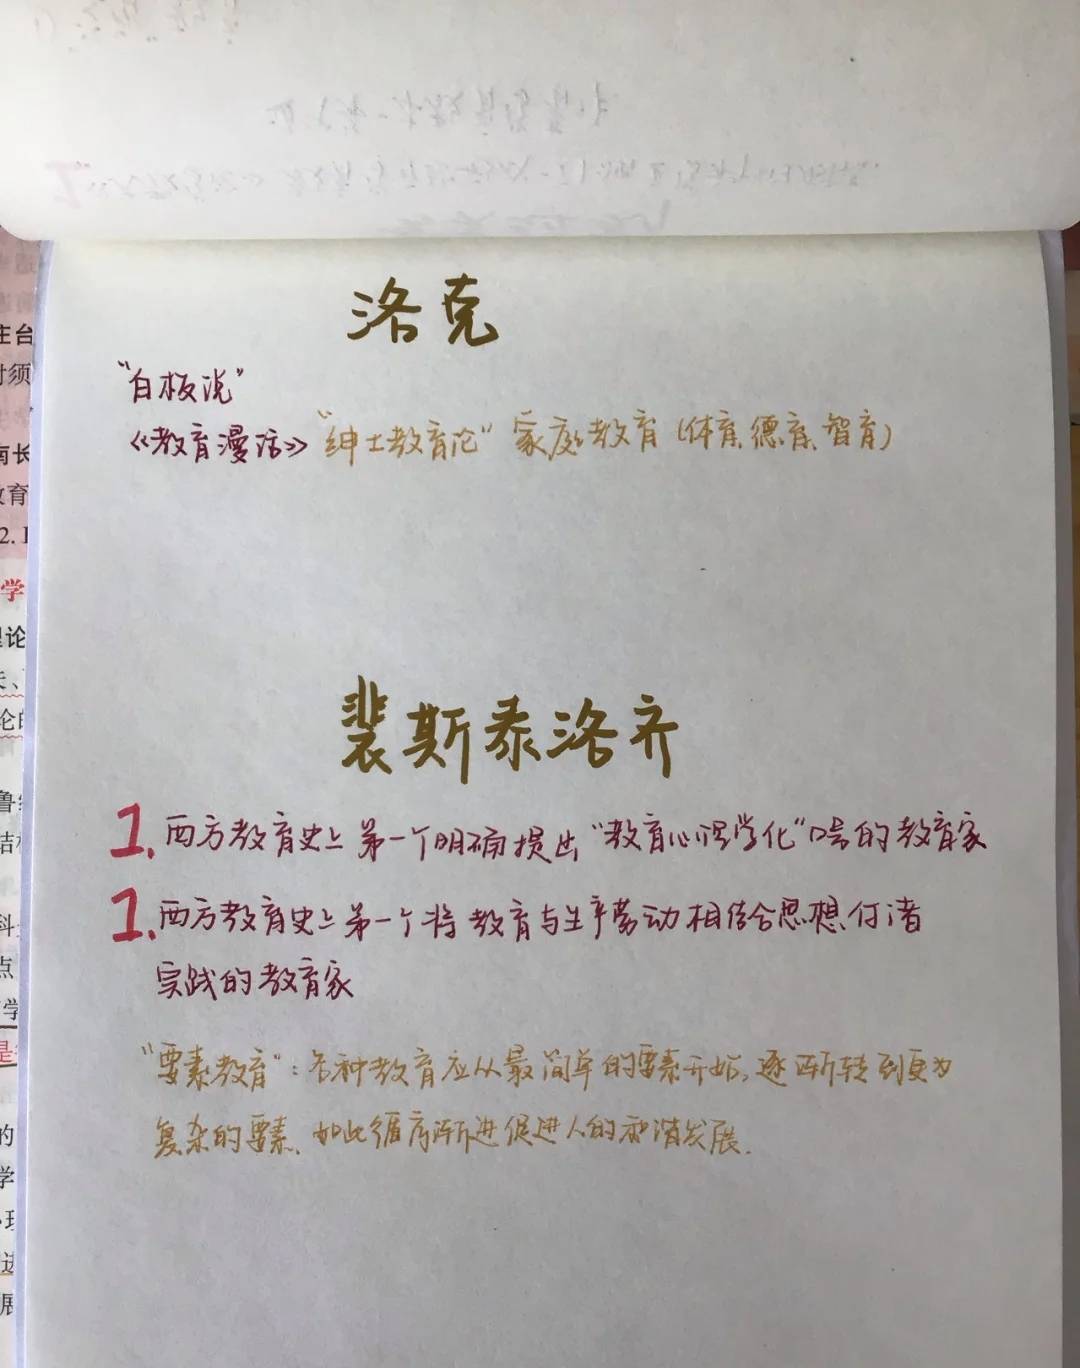 洛克
"白板说"
《教育漫话》"绅士教育论" 家庭教育(体育、德育、智育)
裴斯泰洛齐
1.西方教育史上第一个明确提出"教育心理学化"口号的教育家
1.西方教育史上第一个将教育与生产劳动相结合思想付诸
实践的教育家
"要素教育":各种教育应从最简单的要素开始,逐渐转到更为
复杂的要素、如此循序渐进促进人的和谐发展.
庄台
对须
南长
教育
2.
学
理论
论的
结构
点
学
是
的
学
展